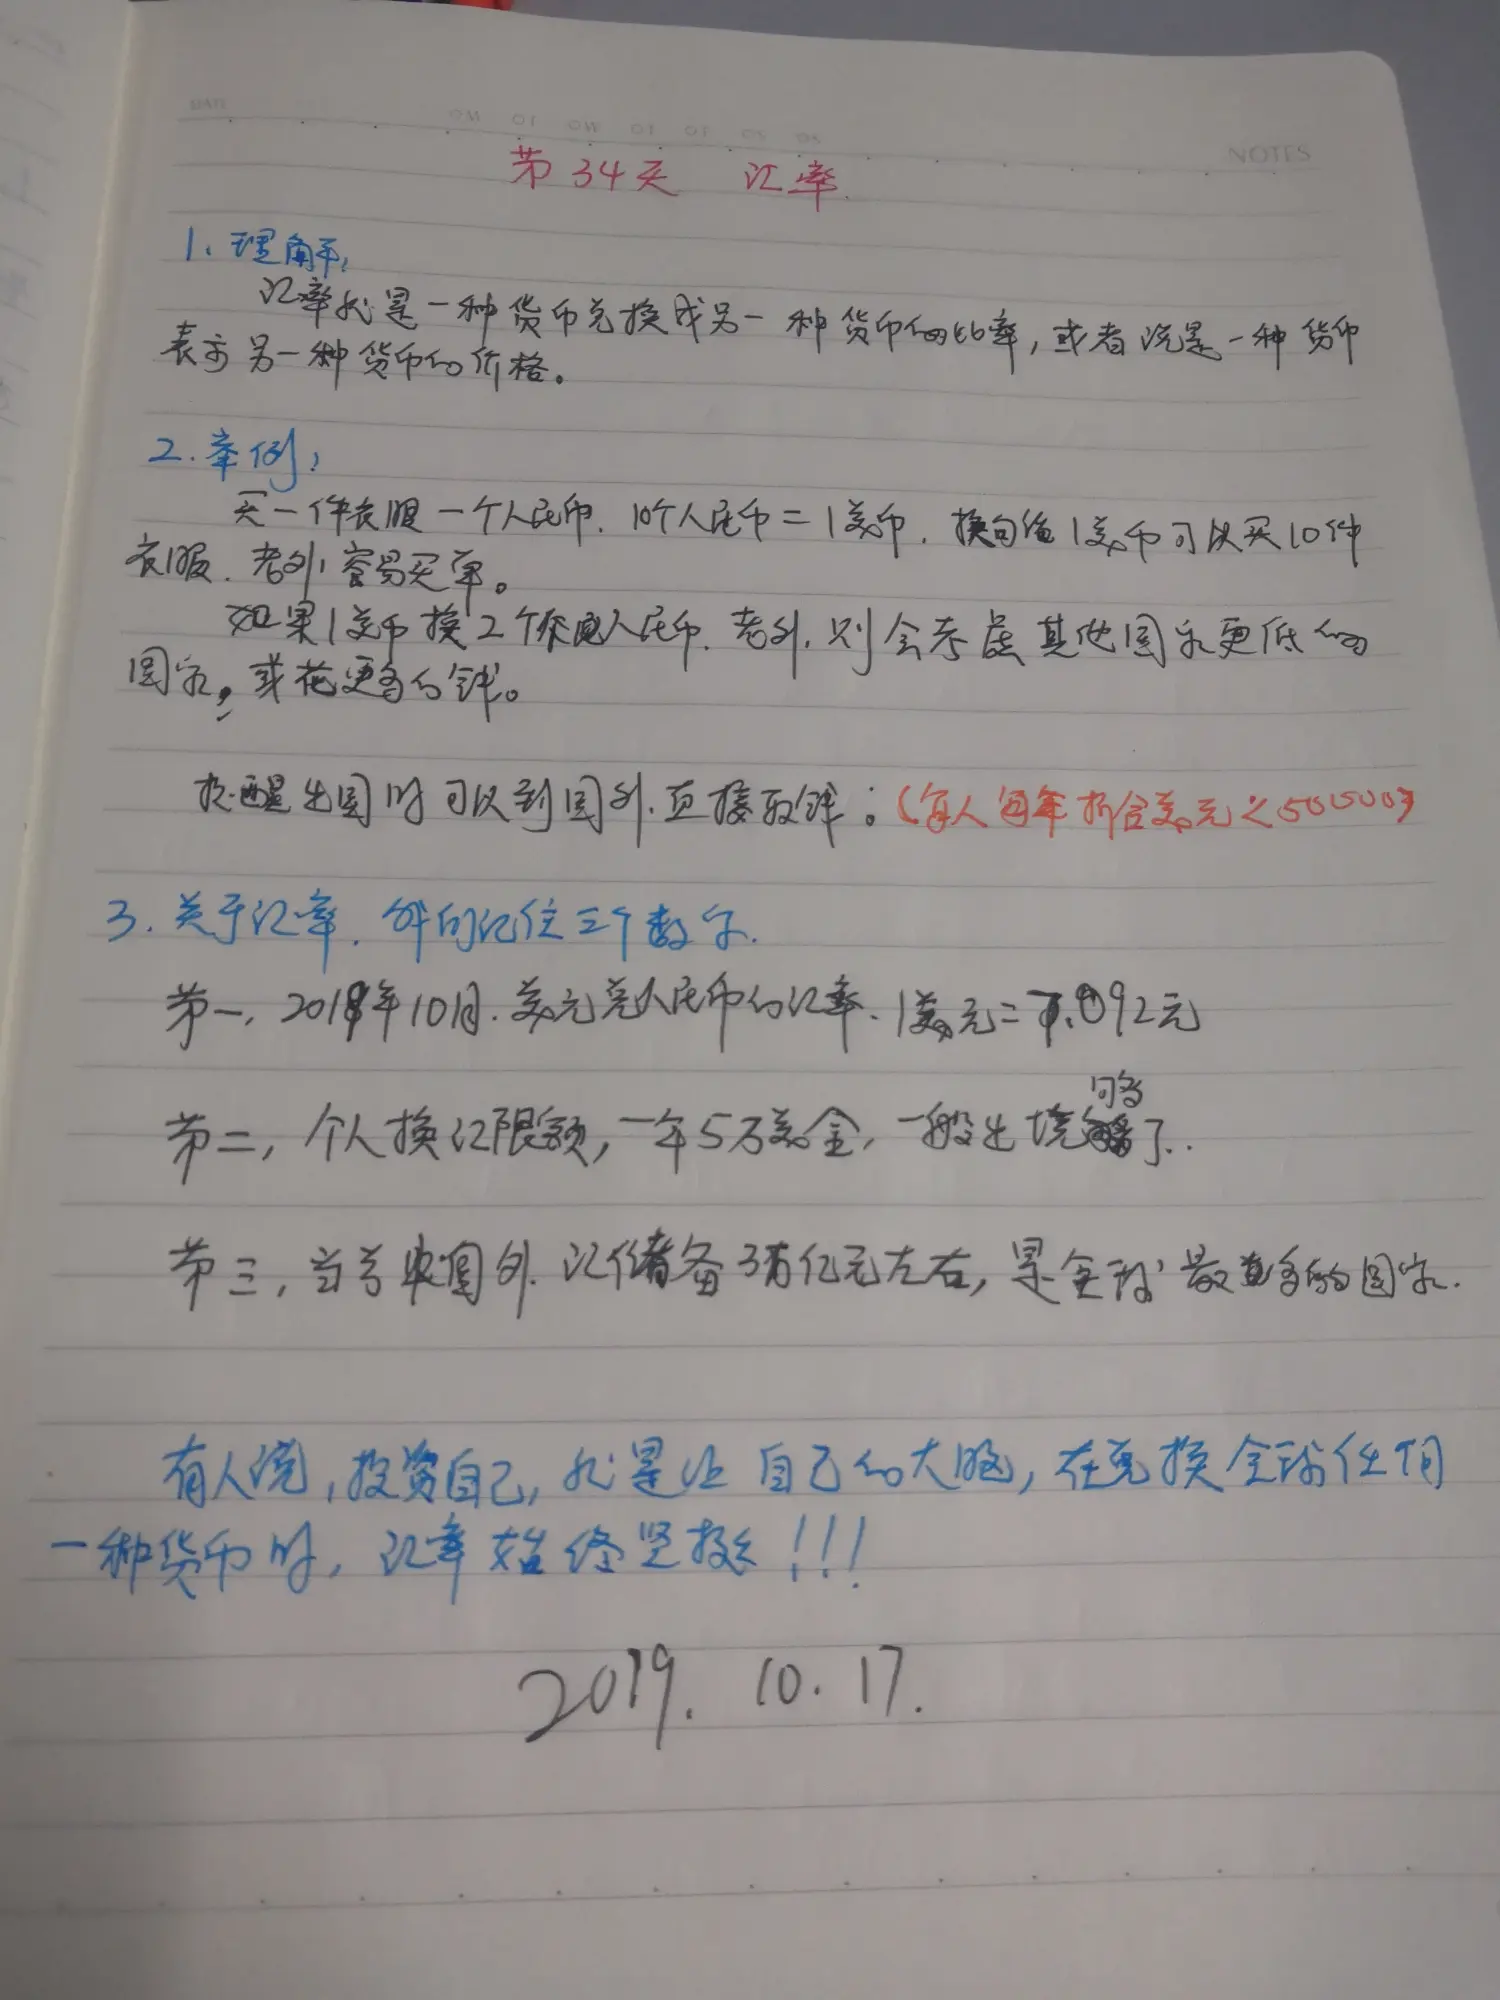 DATE
NOTES
第34天 汇率
1、理解:
汇率就是一种货币兑换成另一种货币的比率,或者说是一种货币
表示另一种货币的价格。
2.举例:
买一件衣服一个人民币.10个人民币=1美币.换句话1美币可以买10件
衣服.老外容易买单。
如果1美币换2个人民币.老外.则会考虑其他国家更低的
国家,或花更多的钱。
提醒出国时可以到国外直接取钱:(每人每年折合美元<50500)
3.关于汇率.记住三个数字.
第一,2019年10月.美元兑人民币的汇率.1美元=7.092元
第二,个人换汇限额,一年5万美金,一般出境够了..
第三,当与中国外汇储备3万亿元左右,是全球最多的国家.
有人说,投资自己,就是让自己的大脑,在兑换全球任何
一种货币时,汇率始终坚挺!!!
2019.10.17.